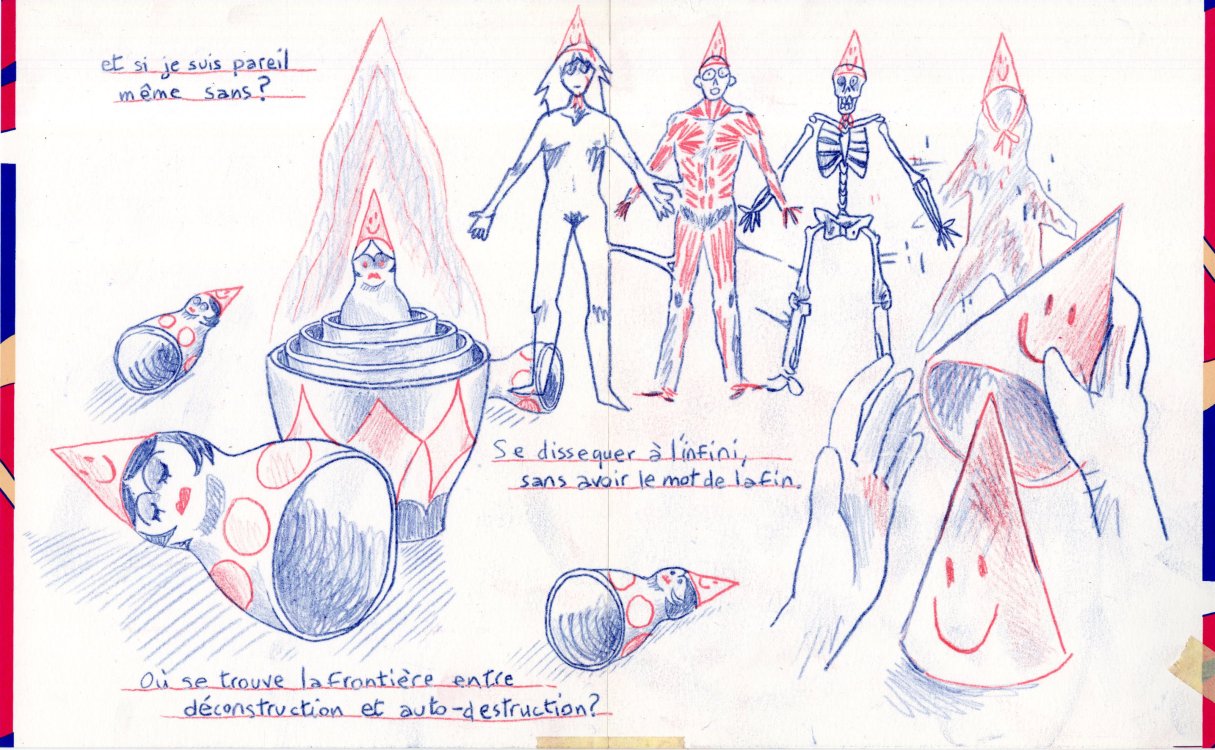 et si je suis pareil
même sans?
Se dissequer à l'infini,
sans avoir le mot de la fin.
Où se trouve la frontière entre
déconstruction et auto-destruction?